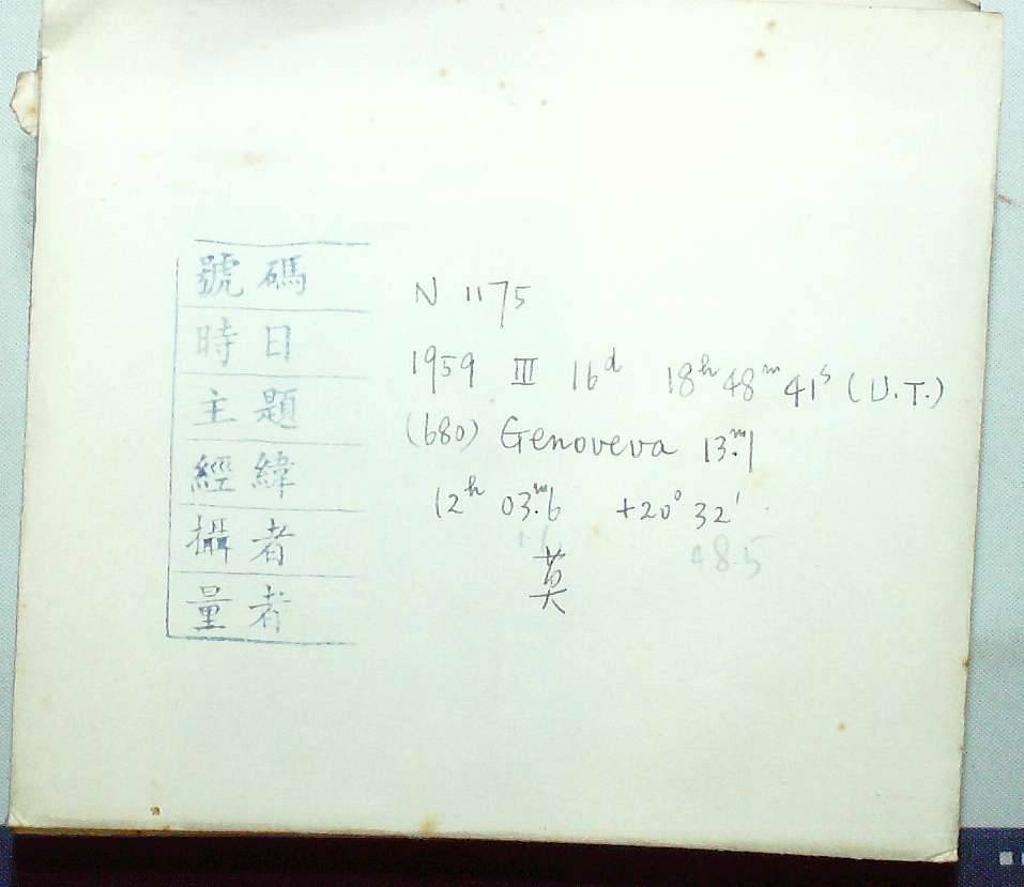 號碼 N 1175
時日 1959 III 16ᵈ 18ʰ48ᵐ41ˢ (U.T.)
主題 (680) Genoveva 13ᵐ.1
經緯 12ʰ 03ᵐ.6 +20° 32'
48.5
攝者 莫
量者